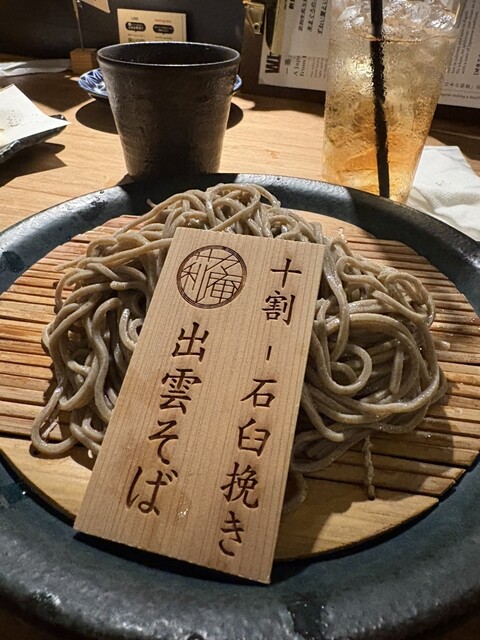 十割ー石臼挽き
出雲そば